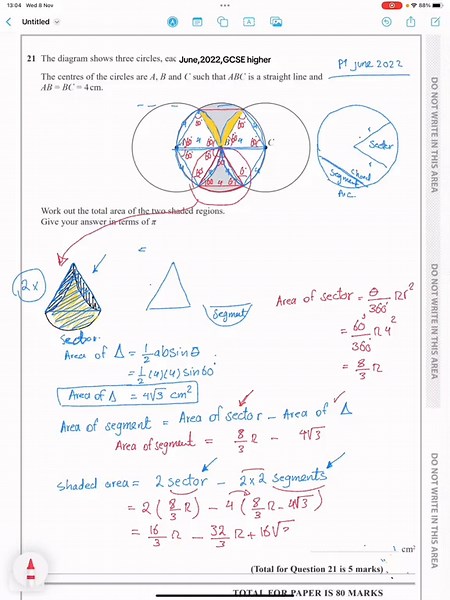 13:04 Wed 8 Nov
88%
Untitled
21 The diagram shows three circles, eac June,2022,GCSE higher
P1 June 2022
The centres of the circles are A, B and C such that ABC is a straight line and
AB = BC = 4 cm.
B
C
Sector
Chord
Segment
Arc
Work out the total area of the two shaded regions.
Give your answer in terms of π
2x
Segment
Sector
Area of sector = θ/360° πr²
= 60°/360° π4²
= 8/3 π
Area of Δ = 1/2 absinθ
= 1/2 (4)(4) sin60°
Area of Δ = 4√3 cm²
Area of segment = Area of sector - Area of Δ
Area of segment = 8/3 π - 4√3
Shaded area = 2 sector - 2x2 segments
= 2(8/3 π) - 4(8/3 π - 4√3)
= 16/3 π - 32/3 π + 16√3
cm²
(Total for Question 21 is 5 marks)
TOTAL FOR PAPER IS 80 MARKS
DO NOT WRITE IN THIS AREA
DO NOT WRITE IN THIS AREA
DO NOT WRITE IN THIS AREA